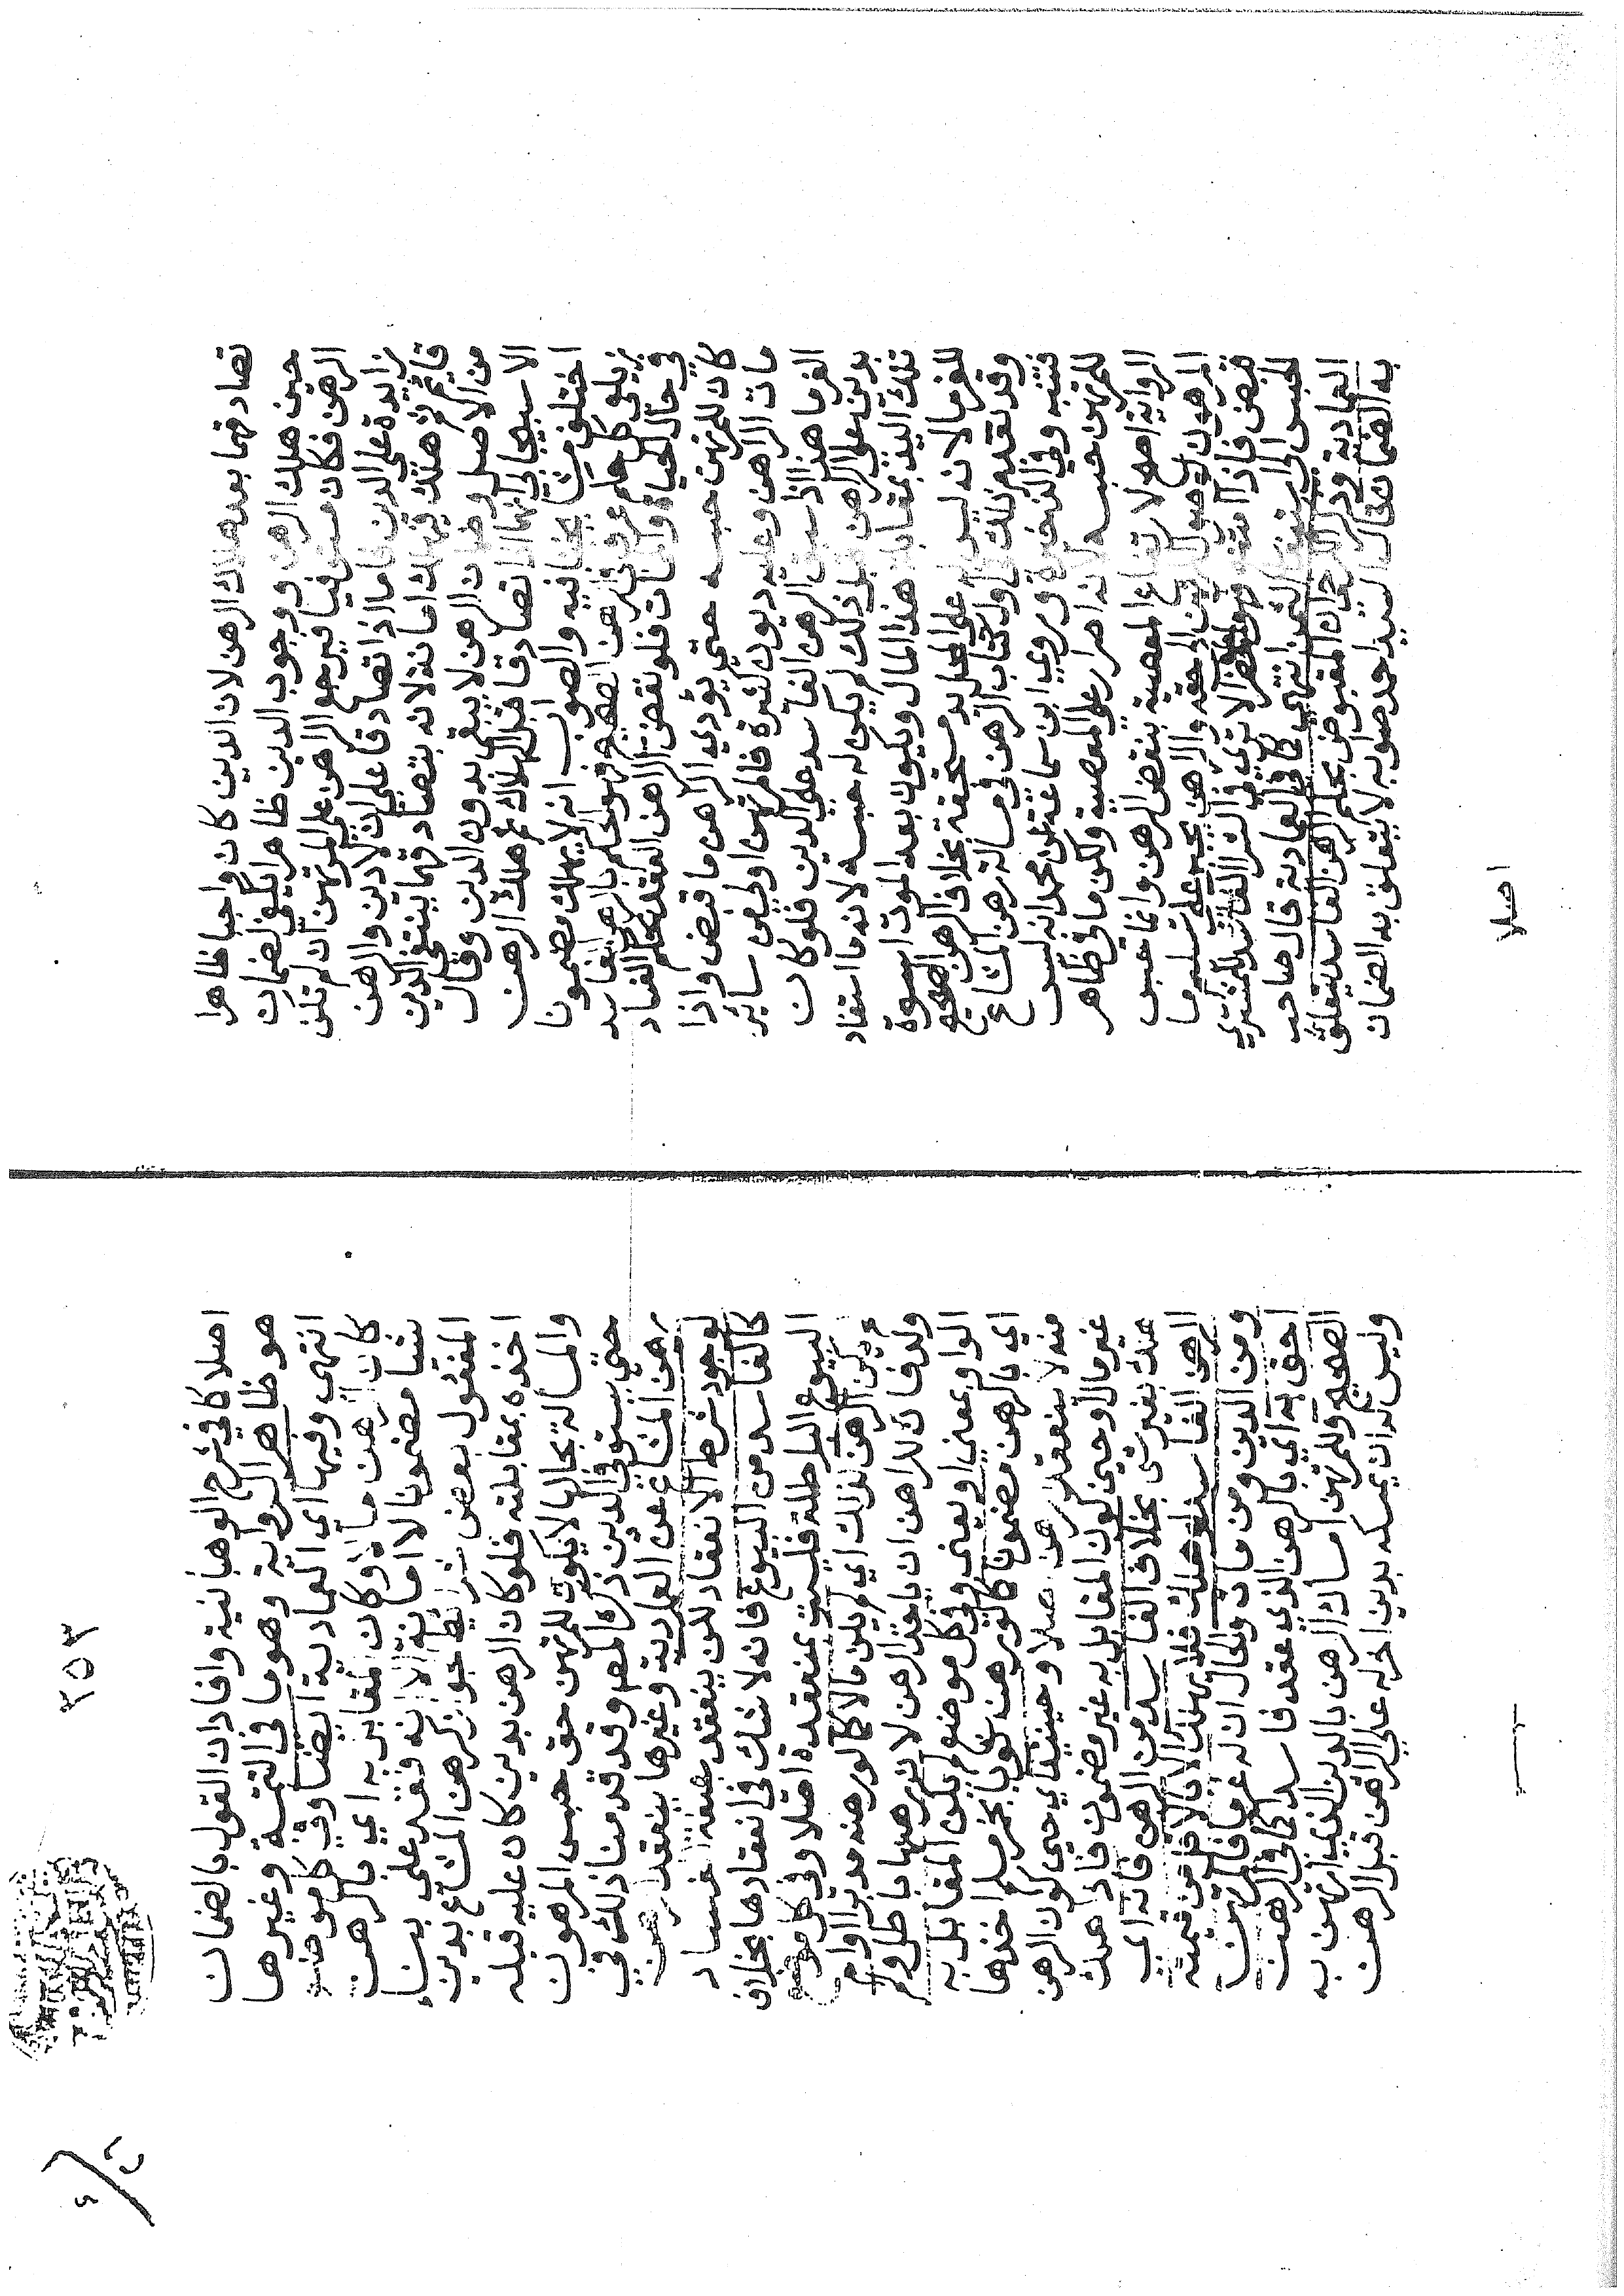 تصادقهما بعد هلاك الرهن لان الدين كان واجبا ظاهرا
حين هلك الرهن ووجوب الدين ظاهرا يكفي لضمان
الرهن فكان مستوفيا فيرجع الراهن على المرتهن ان لم تكن
زايدة على الدين فاما اذا تصادقا على ان لا دين والرهن
قايم ثم هلك فيهلك امانة لانه بتصادقهما ينتفي الدين
من الاصل وضمان الرهن لا يبقى بدون الدين وقال
الاسبيجابي انهما اذا تصادقا قبل الهلاك ثم هلك الرهن
اختلف مشايخنا فيه والصواب انه لا يهلك مضمونا
زيلعي كل حكم عرف في الرهن الصحيح فهو الحكم بالرهن الفاسد
في حال الحياة والممات فلو نقض الراهن العقد بحكم الفساد
كان للمرتهن حبسه حتى يؤدي الراهن ما قبض واذا
مات الراهن وعليه ديون كثيرة فالمرتهن اولى من ساير
الغرما هذا اذا سبق الرهن الفاسد على الدين فلو كان
بدين على الراهن قبل ذلك لم يكن له حبسه لانه ما استفاد
تلك اليد بمقابلة هذا المال ويكون بعد الموت اسوة
للغرما لانه ليس له على المحل يد مستحقة بخلاف الرهن الصحيح
وقد تقدم ذلك اول كتاب الرهن في مسالة رهن المشاع
فتنبه وفي الذخيرة وروي ابن سماعة عن محمد انه ليس
للمرتهن حبسه لانه اصرار على المعصية ولكن ما في ظاهر
الرواية اصح لان ارتفاع المعصية بنقض الرهن وانما حبس
المرهون لوصول المرتهن الى حقه والراهن يجبر على تسليم ما
قبض فاذا امتنع الا ترى في الشرا الفاسد للمشتري
الحبس الى استيفا الثمن انتهى كما في العمادية قال صاحب
العمادية وذكر المقبوض بحكم الرهن الفاسد يتعلق
به الضمان فقال السيد احمد صوابه لا يتعلق به الضمان
اصلا
٣٥٣
اصلا كما في شرح الوهبانية وافاد ان القول بالضمان
هو ظاهر الرواية وهو ما في التتمة وغيرها
انتهى وفيها اي العمادية ايضا وفي كل موضع
كان الرهن مالا وكان المقابل به اي بالرهن
شيا مضمونا لا امانة الا انه فقد على بناء
المفعول بعض شرايط جواز كرهن المشاع بدين
اخذه بمقابلته فلو كان الرهن بدين كان عليه قبله
والمسالة بحالها لا يكون للمرتهن حق حبس المرهون
حتى يستوفي الدين ذكره المص وقد قدمنا ذلك في
رهن المشاع عن العمادية وغيرها ينعقد الرهن
لوجود شرط الانعقاد لكن ينعقد بصفة الفساد
كالفاسد من البيوع فانه لا شك في انعقادها بخلاف
البيوع الباطلة فليست بمنعقدة اصلا وفي كل موضع
لم يكن الرهن كذلك اي لم يكن مالا كما لو رهنه مدبرا او ام
ولد فان للراهن ان ياخذ الرهن لان رهنها باطل ولم
الواو بمعنى او يعني وفي كل موضع لم يكن المقابل به
اي بالرهن مضمونا كما لو رهن ثوبا بخمر مسلم اخذها
منه لا ينعقد الرهن اصلا وحينئذ اي حين كون الرهن
غير مال او حين كون المقابل به غير مضمون فاذا هلك
هلك بغير شي بخلاف الفاسد من الرهن فانه اي
الرهن الفاسد لو هلك فانه يهلك بالاقل من قيمته
ومن الدين ومن مات والحال ان له غرما فالمرتهن
احق به اي بالرهن الذي عقد فاسدا كما في الرهن
الصحيح وللمرتهن امساك الرهن بالدين الذي ارتهن به
وليس له ان يمسكه بدين اخر له على الراهن قبل الرهن